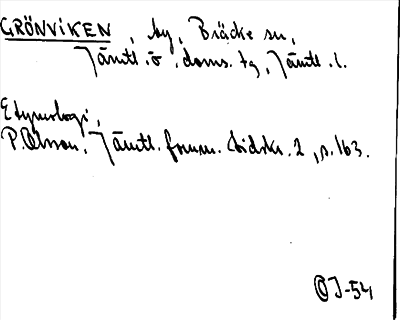 GRÖNVIKEN, by, Bräcke sn,
Jämtl. ö. doms. tg, Jämtl. l.
Etymologi,
P. Olsson, Jämtl. fornm. tidskr. 2, s. 163.
OJ-54